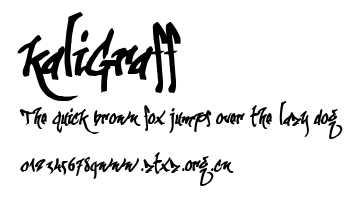 KaliGraff
The quick brown fox jumps over the lazy dog
0123456789www.ztxz.org.cn